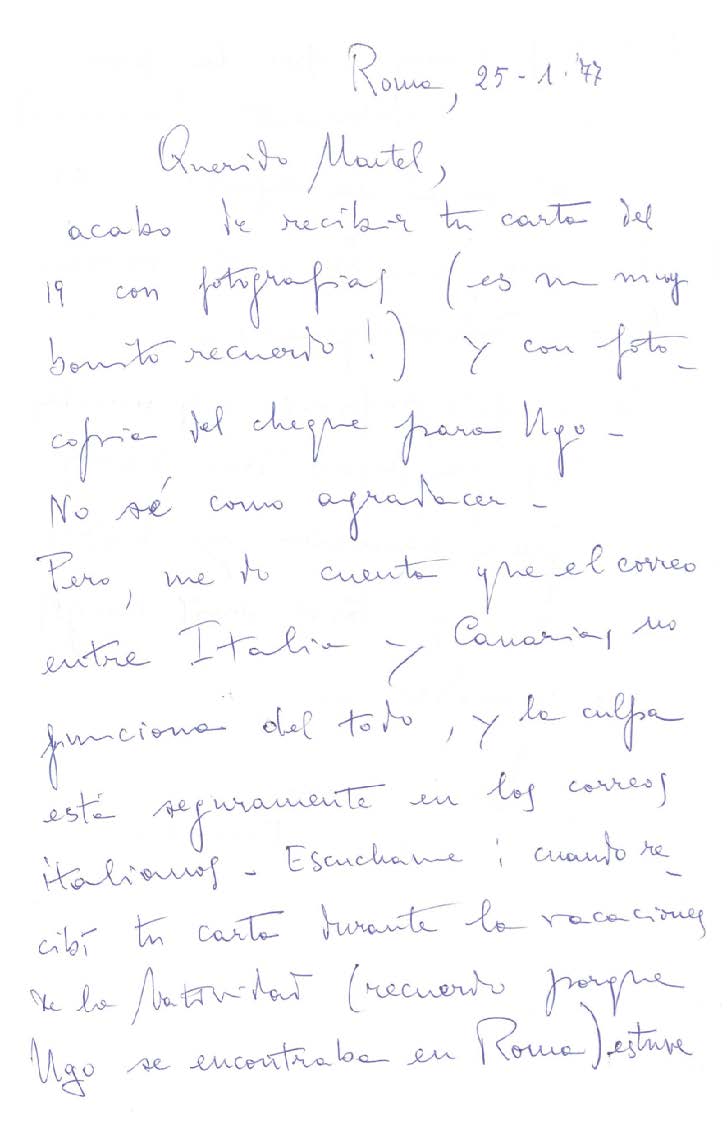 Roma, 25-1-'77
Querido Martel,
acabo de recibir tu carta del
19 con fotografias (es un muy
bonito recuerdo!) y con foto-
copia del cheque para Ugo -
No sé como agradecer -
Pero, me do cuenta que el correo
entre Italia y Canarias no
funciona del todo, y la culpa
está seguramente en los correos
italianos - Escuchame: cuando re-
cibí tu carta durante la vacaciones
de la Natividad (recuerdo porque
Ugo se encontraba en Roma) estuve